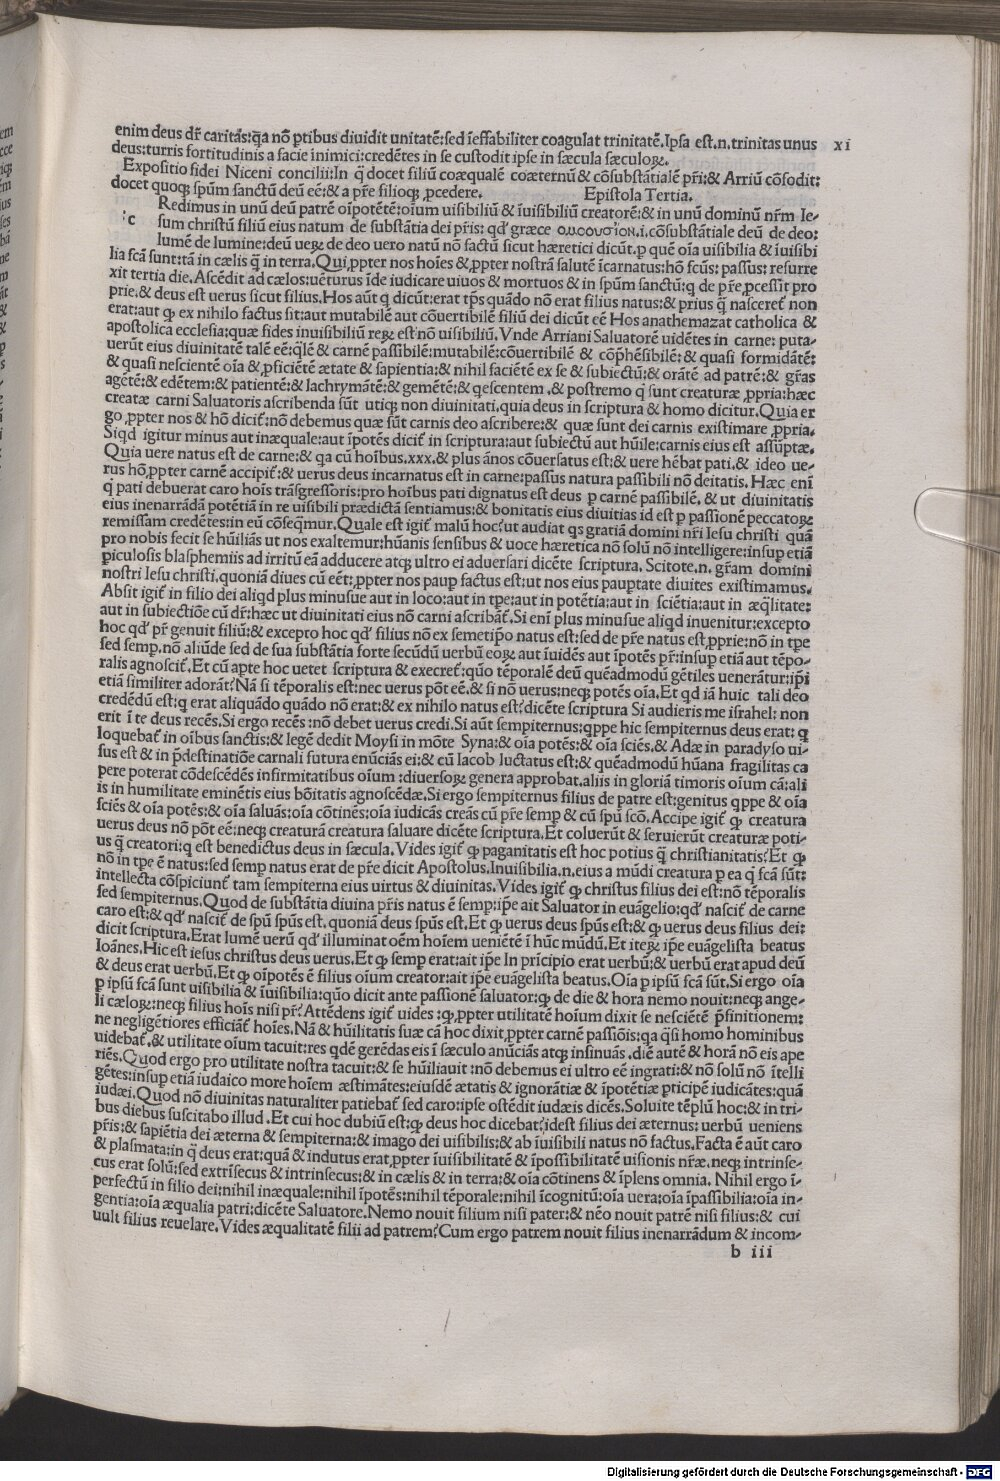 enim deus dr̃ caritas:q̃a nõ ꝑtibus diuidit unitatẽ:sed ĩeffabiliter coagulat trinitatẽ.Ipsa est.n.trinitas unus xi
deus:turris fortitudinis a facie inimici:credẽtes in se custodit ipse in sæcula sæculoꝝ.
Expositio fidei Niceni concilii:In q̃ docet filiũ coæqualẽ coæternũ & cõsubstãtialẽ pr̃i:& Arriũ cõfodit:
docet quoqꝫ spũm sanctũ deũ eẽ:& a pr̃e filioqꝫ ꝓcedere. Epistola Tertia.
c Redimus in unũ deũ patrẽ oĩpotẽtẽ:oĩum uisibiliũ & ĩuisibiliũ creatorẽ:& in unũ dominũ nr̃m Ie-
sum christũ filiũ eius natum de substãtia dei pr̃is: qd' græce ομοουσιον.i.cõsubstãtiale deũ de deo:
lumẽ de lumine:deũ ueꝝ de deo uero natũ nõ factũ sicut hæretici dicũt.ꝑ quẽ oĩa uisibilia & ĩuisibi
lia scã sunt:tã in cælis q̃ in terra.Qui ꝓpter nos hoĩes & ꝓpter nostrã salutẽ ĩcarnatus:hõ fcũs: passus: resurre
xit tertia die.Ascẽdit ad cælos:uẽturus ĩde iudicare uiuos & mortuos & in spũm sanctũ:q de pr̃e ꝓcessit pro
prie.& deus est uerus sicut filius.Hos aũt q dicũt:erat tp̃s quãdo nõ erat filius natus:& prius q̃ nasceret' non
erat:aut ꝙ ex nihilo factus sit:aut mutabilẽ aut cõuertibilẽ filiũ dei dicũt eẽ Hos anathemazat catholica &
apostolica ecclesia:quæ fides inuisibiliũ reꝝ est nõ uisibiliũ.Vnde Arriani Saluatorẽ uidẽtes in carne: puta-
uerũt eius diuinitatẽ talẽ eẽ:q̃lẽ & carnẽ passibilẽ:mutabilẽ:cõuertibilẽ & cõp̃hẽsibilẽ:& quasi formidãtẽ:
& quasi nescientẽ oĩa & ꝓficiẽtẽ ætate & sapientia:& nihil faciẽtẽ ex se & subiectũ:& orãtẽ ad patrẽ:& gr̃as
agẽtẽ:& edẽtem:& patientẽ:& lachrymãtẽ:& gemẽtẽ:& qescentem.& postremo q̃ sunt creaturæ ꝓpria:hæc
creatæ carni Saluatoris ascribenda sũt utiqꝫ non diuinitati.quia deus in scriptura & homo dicitur.Quia er
go ꝓpter nos & hõ dicit':nõ debemus quæ sũt carnis deo ascribere:& quæ sunt dei carnis existimare ꝓpria.
Siqd igitur minus aut inæquale:aut ĩpotẽs dicit' in scriptura:aut subiectũ aut hũile:carnis eius est assũptæ.
Quia uere natus est de carne:& qa cũ hoĩbus.xxx.& plus ãnos cõuersatus est:& uere hẽbat pati.& ideo ue-
rus hõ ꝓpter carnẽ accipit':& uerus deus incarnatus est in carne:passus natura passibili nõ deitatis. Hæc enĩ
q̃ pati debuerat caro hoĩs trãsgressoris:pro hoĩbus pati dignatus est deus ꝑ carnẽ passibilẽ.& ut diuinitatis
eius inenarrãdã potẽtiã in re uisibili prædictã sentiamus:& bonitatis eius diuitias id est ꝑ passionẽ peccatoꝝ
remissam credẽtes:in eũ cõseq̃mur.Quale est igit' malũ hoc?ut audiat qs gratiã domini nr̃i Iesu christi quã
pro nobis fecit se hũiliãs ut nos exaltemur:hũanis sensibus & uoce hæretica nõ solũ nõ intelligere:insuꝑ etiã
ꝑiculosis blasphemiis ad irritũ eã adducere atqꝫ ultro ei aduersari dicẽte scriptura. Scitote.n. gr̃am domini
nostri Iesu christi.quoniã diues cũ eẽt:ꝓpter nos pauꝑ factus est:ut nos eius pauꝑtate diuites existimamus.
Absit igit' in filio dei aliqd plus minusue aut in loco:aut in tp̃e:aut in potẽtia:aut in sciẽtia:aut in æq̃litate:
aut in subiectiõe cũ dr̃:hæc ut diuinitati eius nõ carni ascribãt'.Si enĩ plus minusue aliqd inuenitur:excepto
hoc qd' pr̃ genuit filiũ:& excepto hoc qd' filius nõ ex semetip̃o natus est:sed de pr̃e natus est ꝓprie:nõ in tp̃e
sed semꝑ.nõ aliũde sed de sua substãtia forte secũdũ uerbũ eoꝝ aut ĩuidẽs aut ĩpotẽs pr̃:insuꝑ etiã aut tẽpo-
ralis agnoscit'.Et cũ apte hoc uetet scriptura & execret':quõ tẽporalẽ deũ quẽadmodũ gẽtiles uenerãtur:ip̃i
etiã similiter adorãt?Nã si tẽporalis est:nec uerus põt eẽ.& si nõ uerus:neqꝫ potẽs oĩa.Et qd iã huic tali deo
credẽdũ est:q erat aliquãdo quãdo nõ erat:& ex nihilo natus est?dicẽte scriptura Si audieris me israhel: non
erit ĩ te deus recẽs.Si ergo recẽs:nõ debet uerus credi.Si aũt sempiternus:qppe hic sempiternus deus erat: q
loquebat' in oĩbus sanctis:& legẽ dedit Moysi in mõte Syna:& oĩa potẽs:& oĩa sciẽs.& Adæ in paradyso ui-
sus est & in p̃destinatiõe carnali futura enũciãs ei:& cũ Iacob luctatus est:& quẽadmodũ hũana fragilitas ca
pere poterat cõdescẽdẽs infirmitatibus oĩum:diuersoꝝ genera approbat.aliis in gloriã timoris oĩum cã:ali
is in humilitate eminẽtis eius bõitatis agnoscẽdæ.Si ergo sempiternus filius de patre est:genitus qppe & oĩa
sciẽs & oĩa potẽs:& oĩa saluãs:oĩa cõtinẽs:oĩa iudicãs creãs cũ pr̃e semꝑ & cũ spũ scõ.Accipe igit' ꝙ creatura
uerus deus nõ põt eẽ:neqꝫ creaturã creatura saluare dicẽte scriptura.Et coluerũt & seruierũt creaturæ poti-
us q̃ creatori:q est benedictus deus in sæcula.Vides igit' ꝙ paganitatis est hoc potius q̃ christianitatis?Et ꝙ
nõ in tp̃e ẽ natus:sed semꝑ natus erat de pr̃e dicit Apostolus.Inuisibilia.n.eius a mũdi creatura ꝑ ea q̃ fcã sũt:
intellecta cõspiciunt' tam sempiterna eius uirtus & diuinitas.Vides igit' ꝙ christus filius dei est:nõ tẽporalis
sed sempiternus.Quod de substãtia diuina pr̃is natus ẽ semꝑ:ip̃e ait Saluator in euãgelio:qd' nascit' de carne
caro est:& qd' nascit' de spũ spũs est.quoniã deus spũs est.Et ꝙ uerus deus spũs est:& ꝙ uerus deus filius dei:
dicit scriptura.Erat lumẽ uerũ qd' illuminat oẽm hoĩem ueniẽtẽ ĩ hũc mũdũ.Et iteꝝ ip̃e euãgelista beatus
Ioãnes.Hic est iesus christus deus uerus.Et ꝙ semp erat:ait ip̃e In prĩcipio erat uerbũ:& uerbũ erat apud deũ
& deus erat uerbũ.Et ꝙ oĩpotẽs ẽ filius oĩum creator:ait ip̃e euãgelista beatus.Oĩa ꝑ ipsũ fcã sũt.Si ergo oĩa
ꝑ ipsũ fcã sunt uisibilia & ĩuisibilia:quõ dicit ante passionẽ saluator:ꝙ de die & hora nemo nouit:neqꝫ ange-
li cæloꝝ:neqꝫ filius hoĩs nisi pr̃?Attẽdens igit' uides:ꝙ ꝓpter utilitatẽ hoĩum dixit se nesciẽtẽ p̃finitionem:
ne negligẽtiores efficiãt' hoĩes.Nã & hũilitatis suæ cã hoc dixit ꝓpter carnẽ passiõis:qa q̃si homo hominibus
uidebat'.& utilitate oĩum tacuit:res qdẽ gerẽdas eis ĩ sæculo anũciãs atqꝫ insinuãs.diẽ autẽ & horã nõ eis ape
riẽs.Quod ergo pro utilitate nostra tacuit:& se hũiliauit:nõ debemus ei ultro eẽ ingrati:& nõ solũ nõ ĩtelli
gẽtes:insuꝑ etiã iudaico more hoĩem æstimãtes:eiusdẽ ætatis & ignorãtiæ & ĩpotẽtiæ ꝑticipẽ iudicãtes:quã
iudæi.Quod nõ diuinitas naturaliter patiebat' sed caro:ipse ostẽdit iudæis dicẽs.Soluite tẽplũ hoc:& in tri-
bus diebus suscitabo illud.Et cui hoc dubiũ est:ꝙ deus hoc dicebat?idest filius dei æternus: uerbũ ueniens
pr̃is:& sapiẽtia dei æterna & sempiterna:& imago dei uisibilis:& ab ĩuisibili natus nõ factus.Facta ẽ aũt caro
& plasmata:in q̃ deus erat:quã & indutus erat ꝓpter ĩuisibilitatẽ & ĩpossibilitatẽ uisionis nr̃æ.neqꝫ intrinse-
cus erat solũ:sed extrĩsecus & intrinsecus:& in cælis & in terra:& oĩa cõtinens & ĩplens omnia. Nihil ergo ĩ-
perfectũ in filio dei:nihil inæquale:nihil ĩpotẽs:nihil tẽporale:nihil ĩcognitũ:oĩa uera:oĩa ĩpassibilia:oĩa in-
gentia:oĩa æqualia patri:dicẽte Saluatore.Nemo nouit filium nisi pater:& nẽo nouit patrẽ nisi filius:& cui
uult filius reuelare.Vides æqualitatẽ filii ad patrem?Cum ergo patrem nouit filius inenarrãdum & incom-
b iii
Digitalisierung gefördert durch die Deutsche Forschungsgemeinschaft - DFG